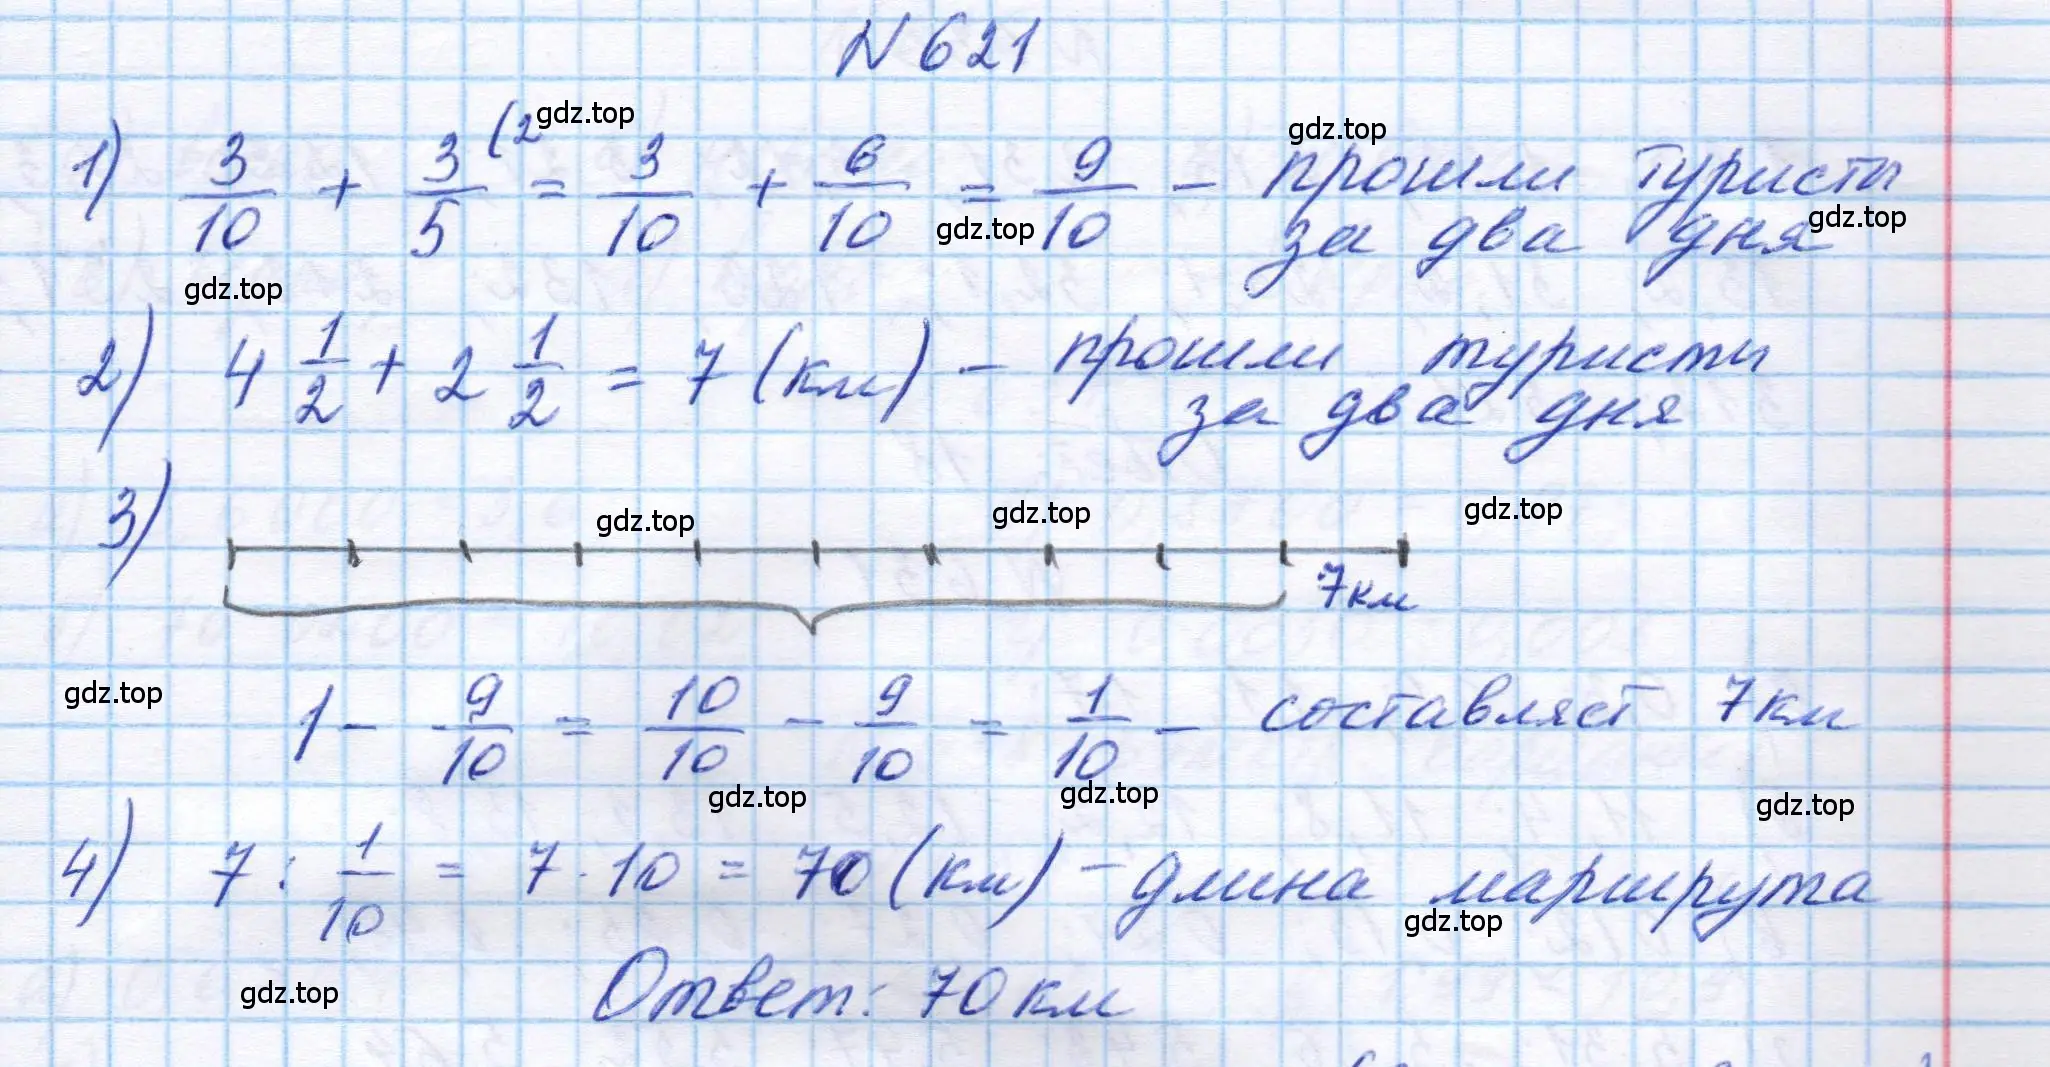 N 621
1) 3/10 + 3/5 (2 = 3/10 + 6/10 = 9/10 – прошли туристы
за два дня
2) 4 1/2 + 2 1/2 = 7 (км) – прошли туристы
за два дня
3)
7 км
1 – 9/10 = 10/10 – 9/10 = 1/10 – составляет 7 км
4) 7 : 1/10 = 7 · 10 = 70 (км) – длина маршрута
Ответ: 70 км
gdz.top
gdz.top
gdz.top
gdz.top
gdz.top
gdz.top
gdz.top
gdz.top
gdz.top
gdz.top
gdz.top
gdz.top
gdz.top
gdz.top